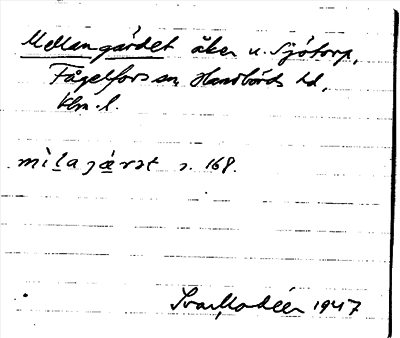 Mellangärdet åker u. Sjötorp,
Fågelfors sn, Handbörds hd,
Klm. l.
mìlajǽrət s. 168.
Ivar Modéer 1947